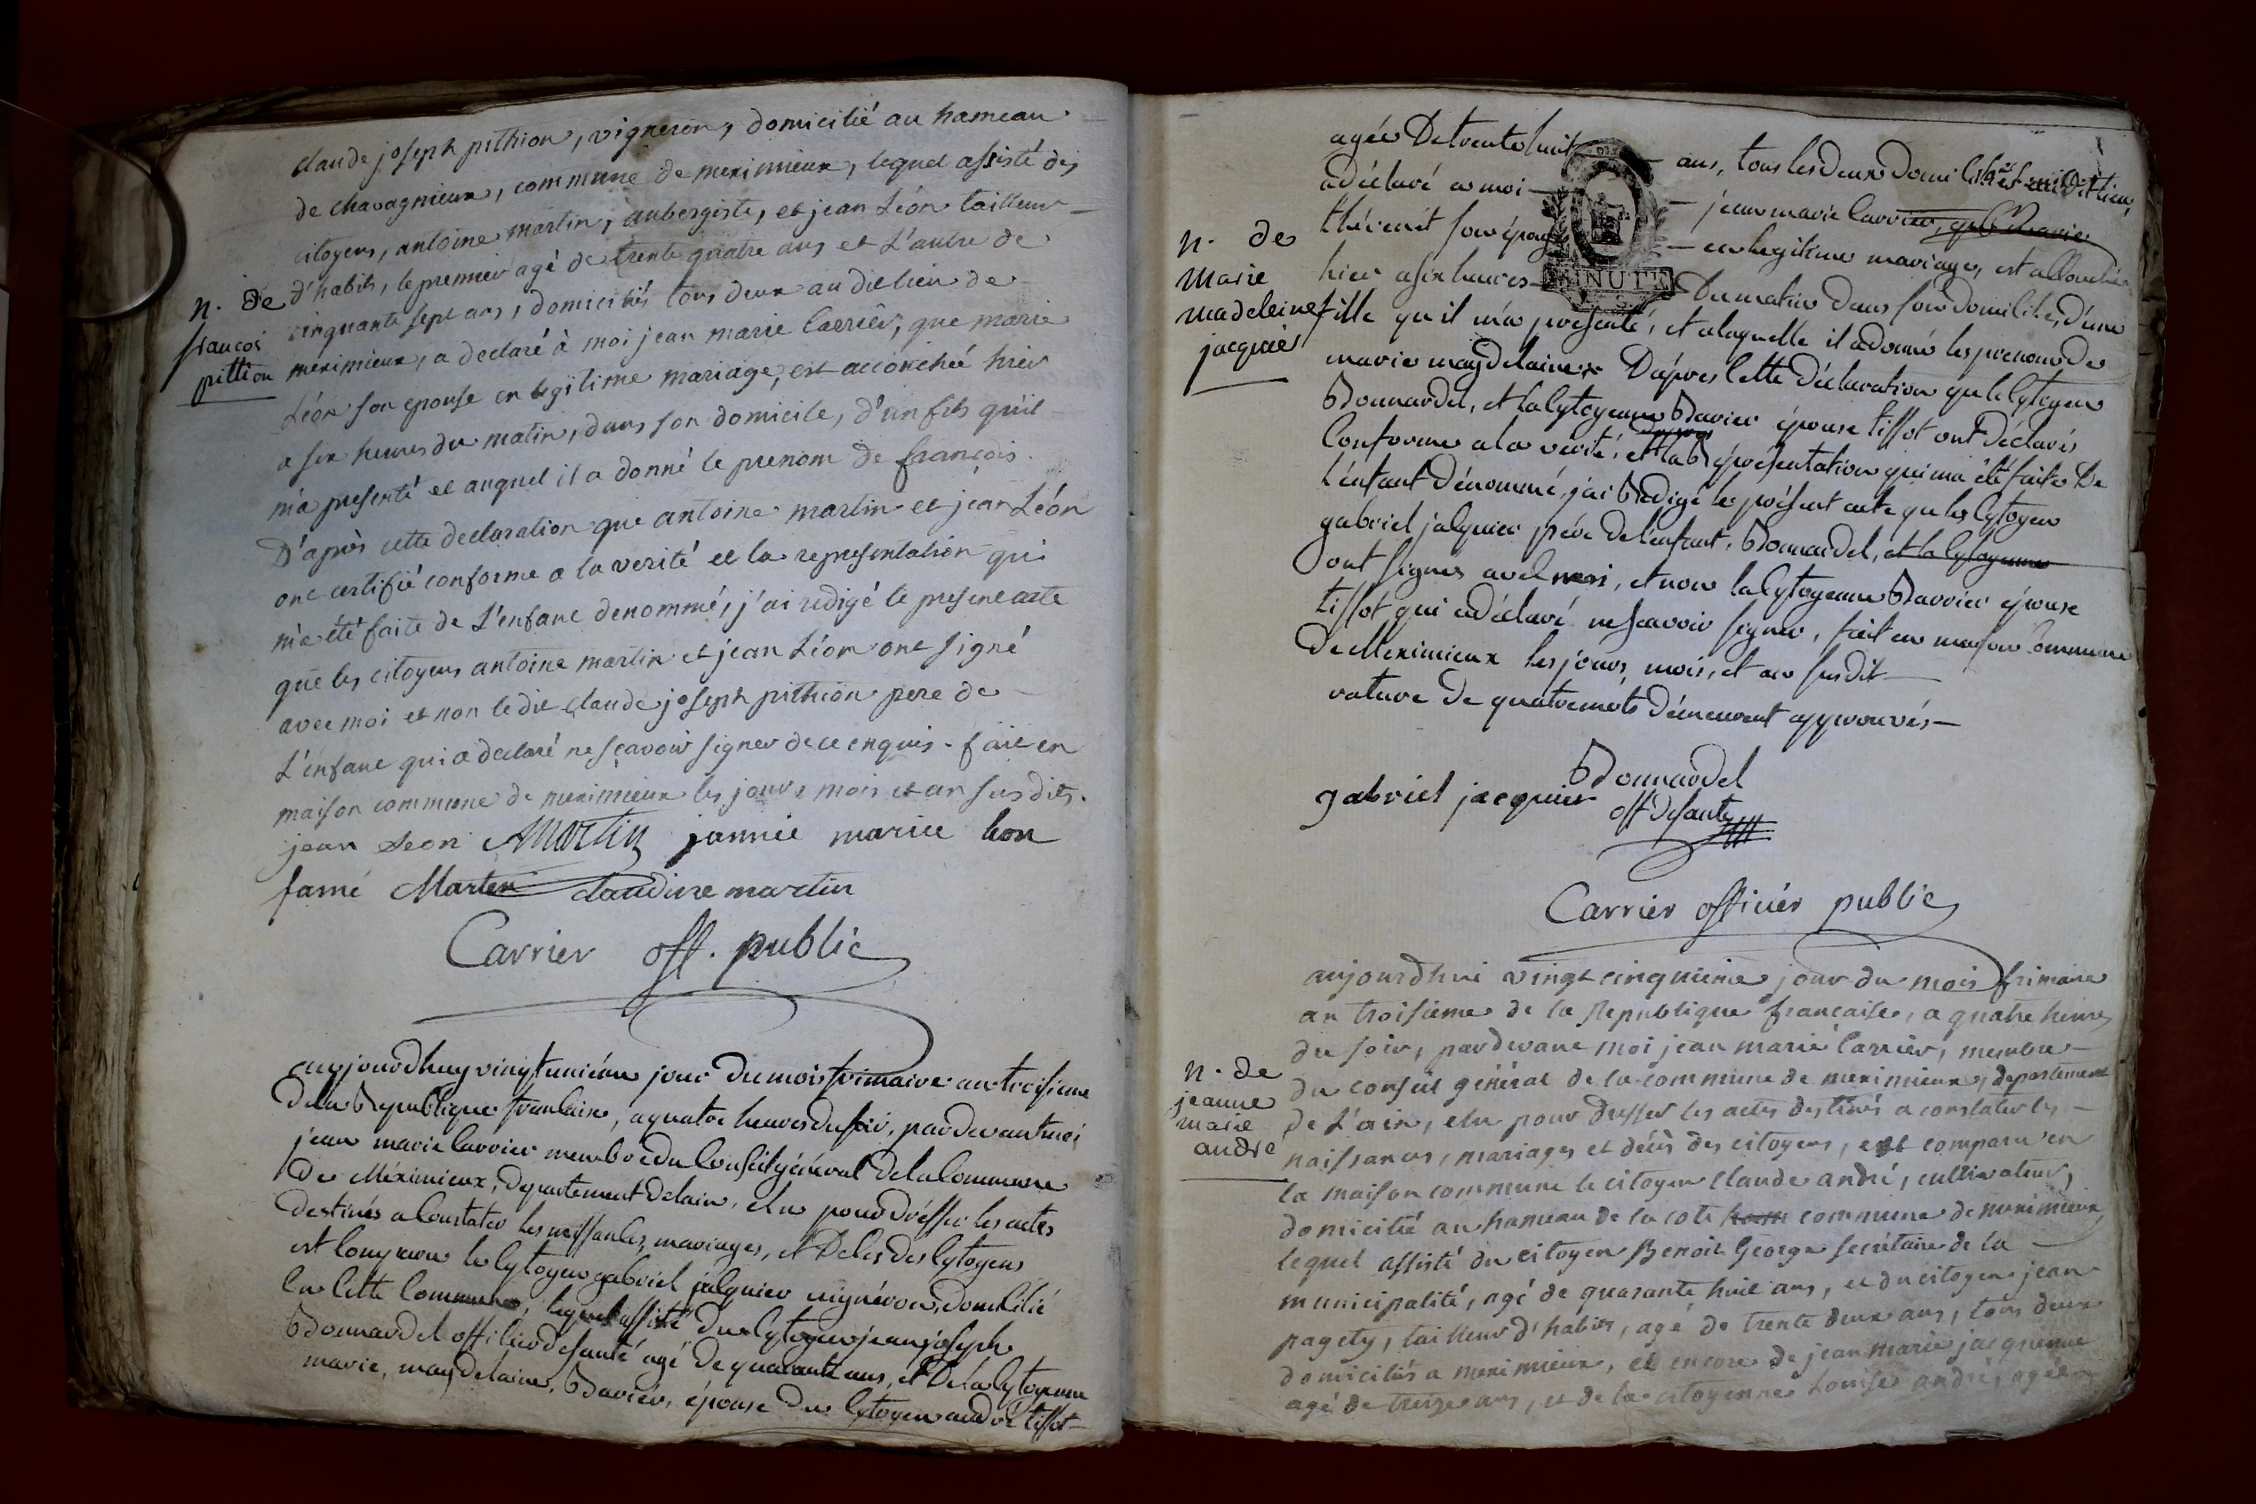 claude joseph pithion, vigneron, domicilié au hameau
de chavagnieux, commune de meximieux, lequel assisté des
citoyens, antoine martin, aubergiste, et jean Léon tailleur
n. de
francois
pittion
d'habits, le premier agé de trente quatre ans et L'autre de
cinquante sept ans, domiciliés tous deux au dit lieu de
meximieux, a declaré à moi jean marie Carrier, que marie
Léon son epouse en legitime mariage, est accouchée hier
a six heures du matin, dans son domicile, d'un fils qu'il
m'a presenté et auquel il a donné le prenom de françois.
D'après cette declaration que antoine martin et jean Léon
ont certifié conforme a la verité et la representation qui
m'a été faite de L'enfant denommé, j'ai redigé le present acte
que les citoyens antoine martin et jean Léon ont signé
avec moi et non le dit Claude joseph pithion pere de
L'enfant qui a declaré ne sçavoir signer de ce enquis. fait en
maison commune de meximieux les jours mois et an susdits.
jean Leon AMartin jannie mariee lion
famé Marten claudine martin
Carrier off. public
aujourdhuy vingt unième jour du mois frimaire an troisieme
dela Republique francaise, a quatre heures du soir, pardevant moi
jean marie Carrier membre du Conseil général dela Commune
de Meximieux, departement delain, elu pour dresser les actes
destinés a Constater les naissances, mariages, et Deces des Cytoyens
est Comparu le Cytoyen gabriel jacquier vigneron domicilié
en Cette Commune, lequel assisté du Cytoyen jean joseph
Bonnardel officier desanté agé de quarante ans, et De la Cytoyenne
marie, magdelaine, Bavier, épouse du Cytoyen andré tissot
agée De trente huit ans, tous les deux Domiciliés
a déclaré a moi jean marie Carrier, que Marie
thévenet son épouse en legitime mariage, est accouchée
n. de
marie
madeleine
jacquier
hier a six heures Du matin dans son domicile, d'une
fille qu'il m'a presenté, et a laquelle il a donné les prenoms de
marie magdelaine D'après Cette déclaration que le Cytoyen
Bonnardel, et la Cytoyenne Bavier épouse tissot ont déclarés
Conforme a la verité, et la Réprésentation qui ma été faite De
L'enfant dénommé, j'ai Redigé le présent acte que les Cytoyens
gabriel jacquier père de lenfant, Bonnardel, et la Cytoyenne
ont signes avec moi, et non la Cytoyenne Bavier épouse
tissot qui a déclaré ne scavoir signer, fait en maison Commune
De Meximieux les jours, mois, et an susdit
rature de quatre mots demeurent approuvés
Bonnardel
gabriel jacquier off desanté
Carrier officier public
aujourdhui vingt cinquième jour du mois frimaire
an troisieme de la Republique francaise, a quatre heures
du soir, pardevant moi jean marie Carrier, membre
n. de
jeanne
marie
andré
du conseil général de la commune de meximieux, departement
de L'ain, elu pour dresser les actes destinés a constater les
naissances, mariages et décès des citoyens, est comparu en
la maison commune le citoyen Claude andré, cultivateur,
domicilié au hameau de la cote ham commune de meximieux
lequel assisté du citoyen Benoit George secrétaire de la
municipalité, agé de quarante huit ans, et du citoyen jean
pagety, tailleur d'habits, agé de trente deux ans, tous deux
domiciliés a meximieux, et encore de jean marie jacquemet
agé de treize ans, et de la citoyenne Louise andré, agée